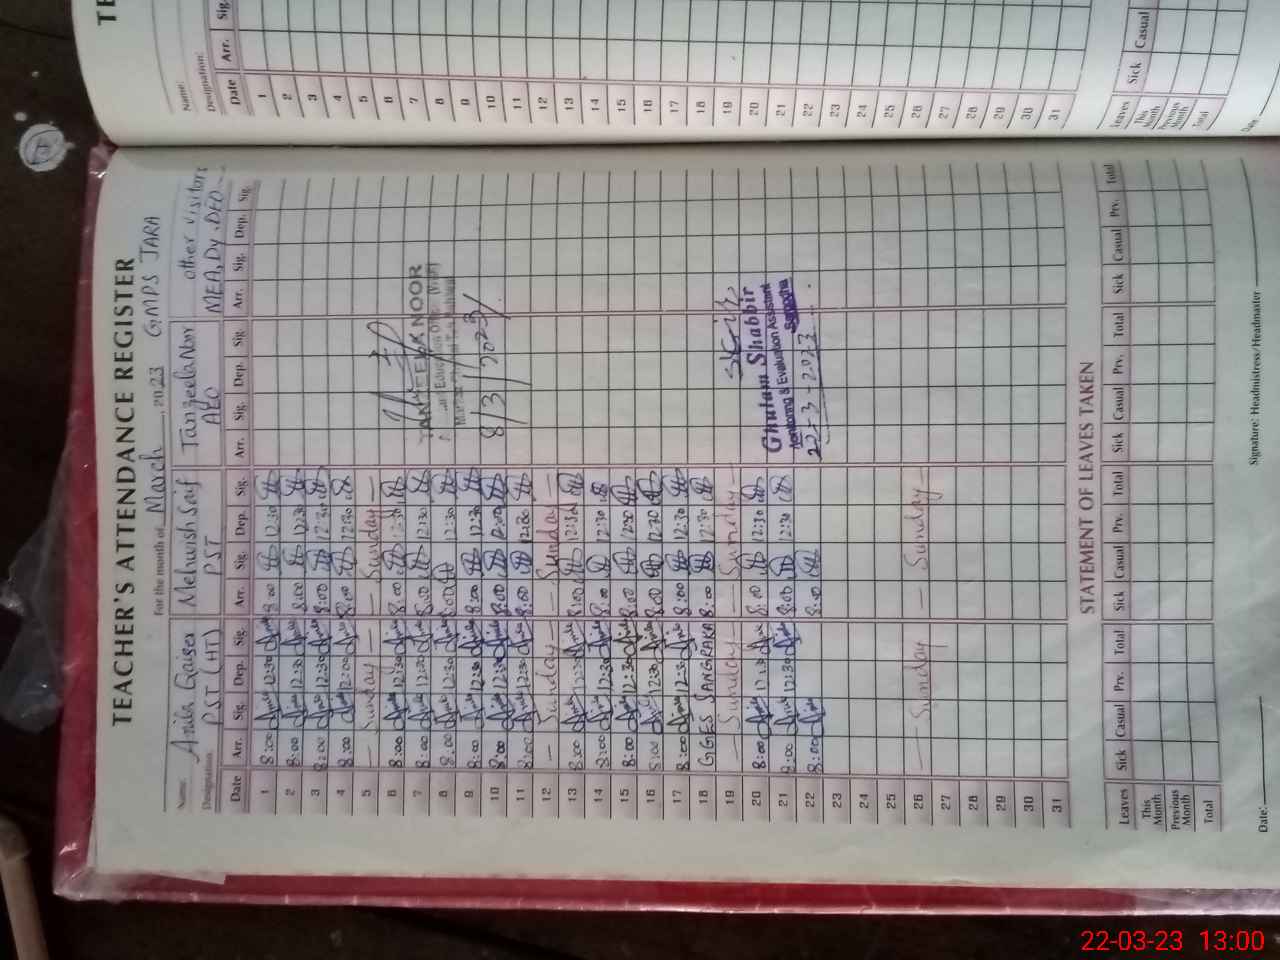 TEACHER'S ATTENDANCE REGISTER
For the month of March, 2023 GMPS JARA
Name: Anila Qaiser Mehwish Saif Tanzeela Noor other visitors
Designation: PST (HT) PST AEO MEA, Dy. DEO
Date Arr. Sig. Dep. Sig. Arr. Sig. Dep. Sig. Arr. Sig. Dep. Sig. Arr. Sig. Dep. Sig.
1 8:00 12:30 8:00 12:30
2 8:00 12:30 8:00 12:30
3 8:00 12:30 8:00 12:30
4 8:00 12:00 8:00 12:30
5 — Sunday — — Sunday —
6 8:00 12:30 8:00 12:30
7 8:00 12:30 8:00 12:30 NOOR
8 8:00 12:30 8:00 12:30
9 8:00 12:30 8:00 12:30
10 8:00 12:30 8:00 8/3/2023
11 8:00 12:30 8:00 12:30
12 — Sunday — — Sunday —
13 8:00 12:30 8:00 12:30
14 8:00 12:30 8:00 12:30
15 8:00 12:30 8:00 12:30
16 8:00 12:30 8:00 12:30
17 8:00 12:30 8:00 12:30
18 GGES SANGRAKA 8:00 12:30
19 — Sunday — — Sunday —
20 8:00 12:30 8:00 12:30 Ghulam Shabbir
21 8:00 12:30 8:00 12:30 Monitoring & Evaluation Assistant
Sargodha
22 8:00 8:00 22-3-2023
23
24
25
26 — Sunday — — Sunday —
27
28
29
30
31
STATEMENT OF LEAVES TAKEN
Leaves Sick Casual Prv. Total Sick Casual Prv. Total Sick Casual Prv. Total Sick Casual Prv. Total
This Month
Previous Month
Total
Date: Signature: Headmistress/Headmaster
TE
Name:
Designation:
Date Arr. Sig.
1
2
3
4
5
6
7
8
9
10
11
12
13
14
15
16
17
18
19
20
21
22
23
24
25
26
27
28
29
30
31
Leaves Sick Casual
This Month
Previous Month
Total
Date
22-03-23 13:00